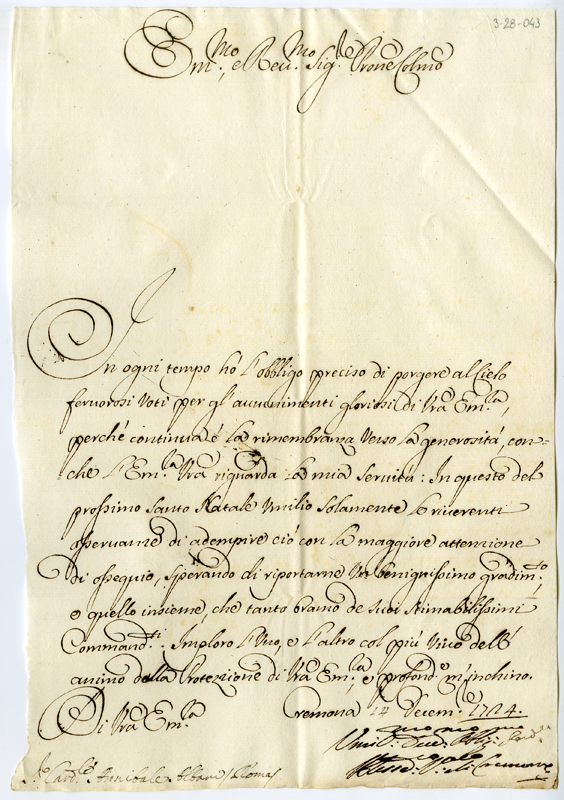 3-28-043
Em.mo, e Reu.mo Sig.r Prone Colmo
In ogni tempo hò l'obbligo preciso di porgere al Cielo
feruorosi Voti per gl'auuenimenti gloriosi di Vra Em.za,
perché continua è la rimembranza verso la generosità, con=
che l'Em.za Vra riguarda la mia seruitù: In questo del
prossimo Santo Natale Umilio solamente le riuerenti
osseruanze di adempire ciò con la maggiore attenzione
di ossequio, sperando di riportarne Un benignissimo gradim.to,
e quello insieme, che tanto bramo de suoi stimabilissimi
Command.ti. Imploro l'Uno, e l'altro col più Viuo dell'
animo della Protezione di Vra Em.za, e profond.e m'inchino.
Di Vra Em.za Cremona 14 Decem.e 1724.
Umil.mo Diu.mo Obblig.mo
di Cremona
S.r Card.le Annibale Albani / Roma